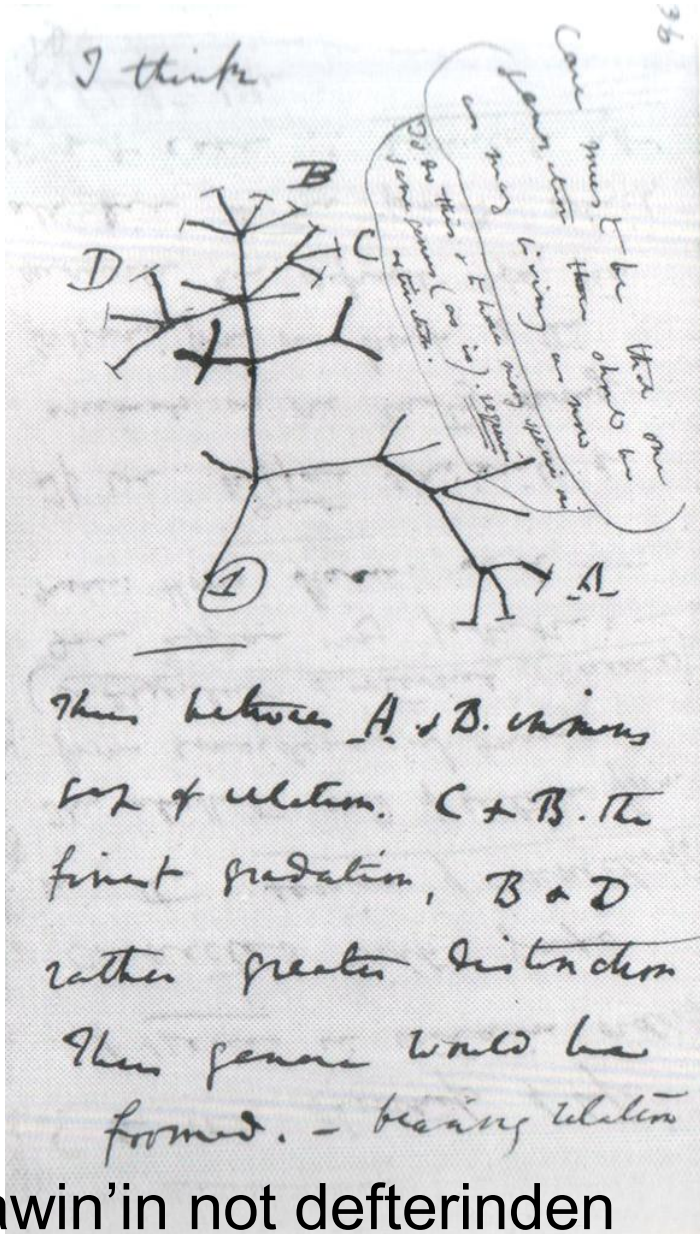 36
I think
Case must be that one
generation then should be
as many living as now
To do this & to have many species in
same genus (as is). requires
extinction.
B
D
C
1
A
Thus between A & B. immense
gap of relation. C & B. The
finest gradation, B & D
rather greater distinction
Thus genera would be
formed. — bearing relation
awin'in not defterinden